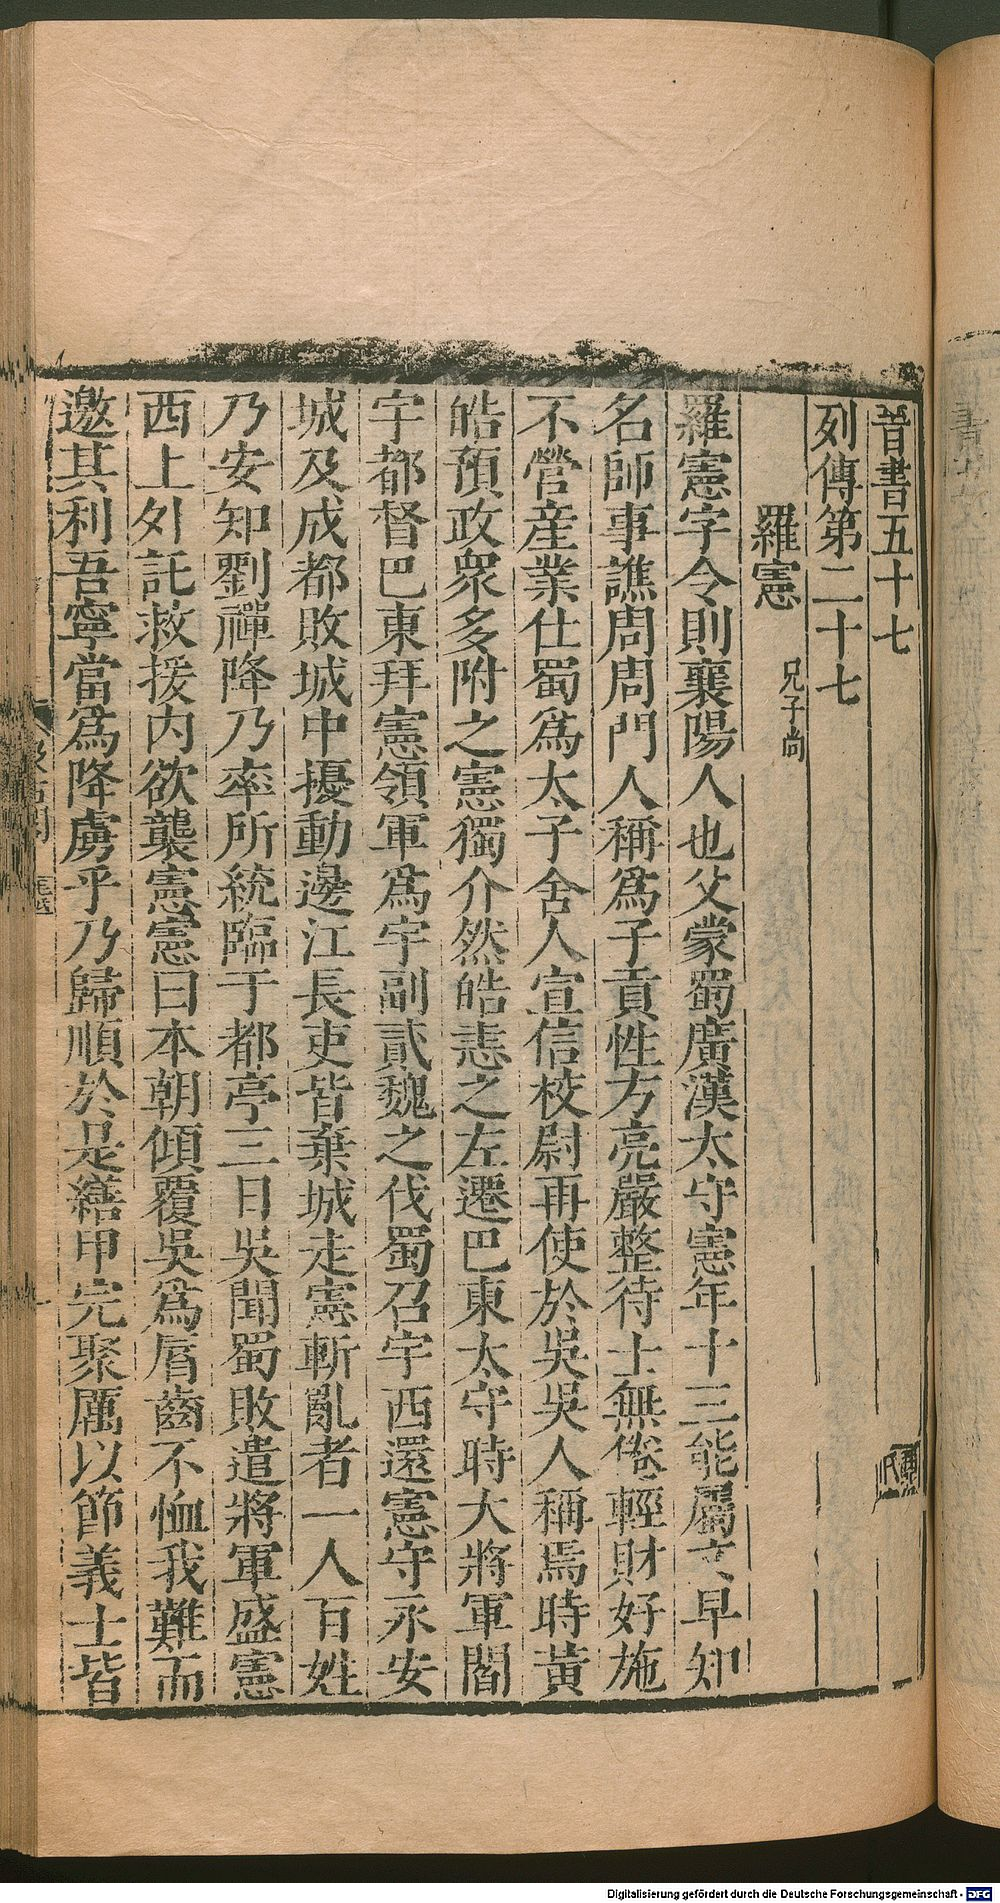 晉書五十七
列傳第二十七
羅憲 兄子尚
羅憲字令則襄陽人也父蒙蜀廣漢太守憲年十三能屬文早知
名師事譙周周門人稱爲子貢性方亮嚴整待士無倦輕財好施
不營産業仕蜀爲太子舍人宣信校尉再使於吳吳人稱焉時黃
皓預政衆多附之憲獨介然皓恚之左遷巴東太守時大將軍閻
宇都督巴東拜憲領軍爲宇副貳魏之伐蜀召宇西還憲守永安
城及成都敗城中擾動邊江長吏皆棄城走憲斬亂者一人百姓
乃安知劉禪降乃率所統臨于都亭三日吳聞蜀敗遣將軍盛憲
西上外託救援内欲襲憲憲曰本朝傾覆吳爲脣齒不恤我難而
邀其利吾寧當爲降虜乎乃歸順於是繕甲完聚厲以節義士皆
Digitalisierung gefördert durch die Deutsche Forschungsgemeinschaft - DFG